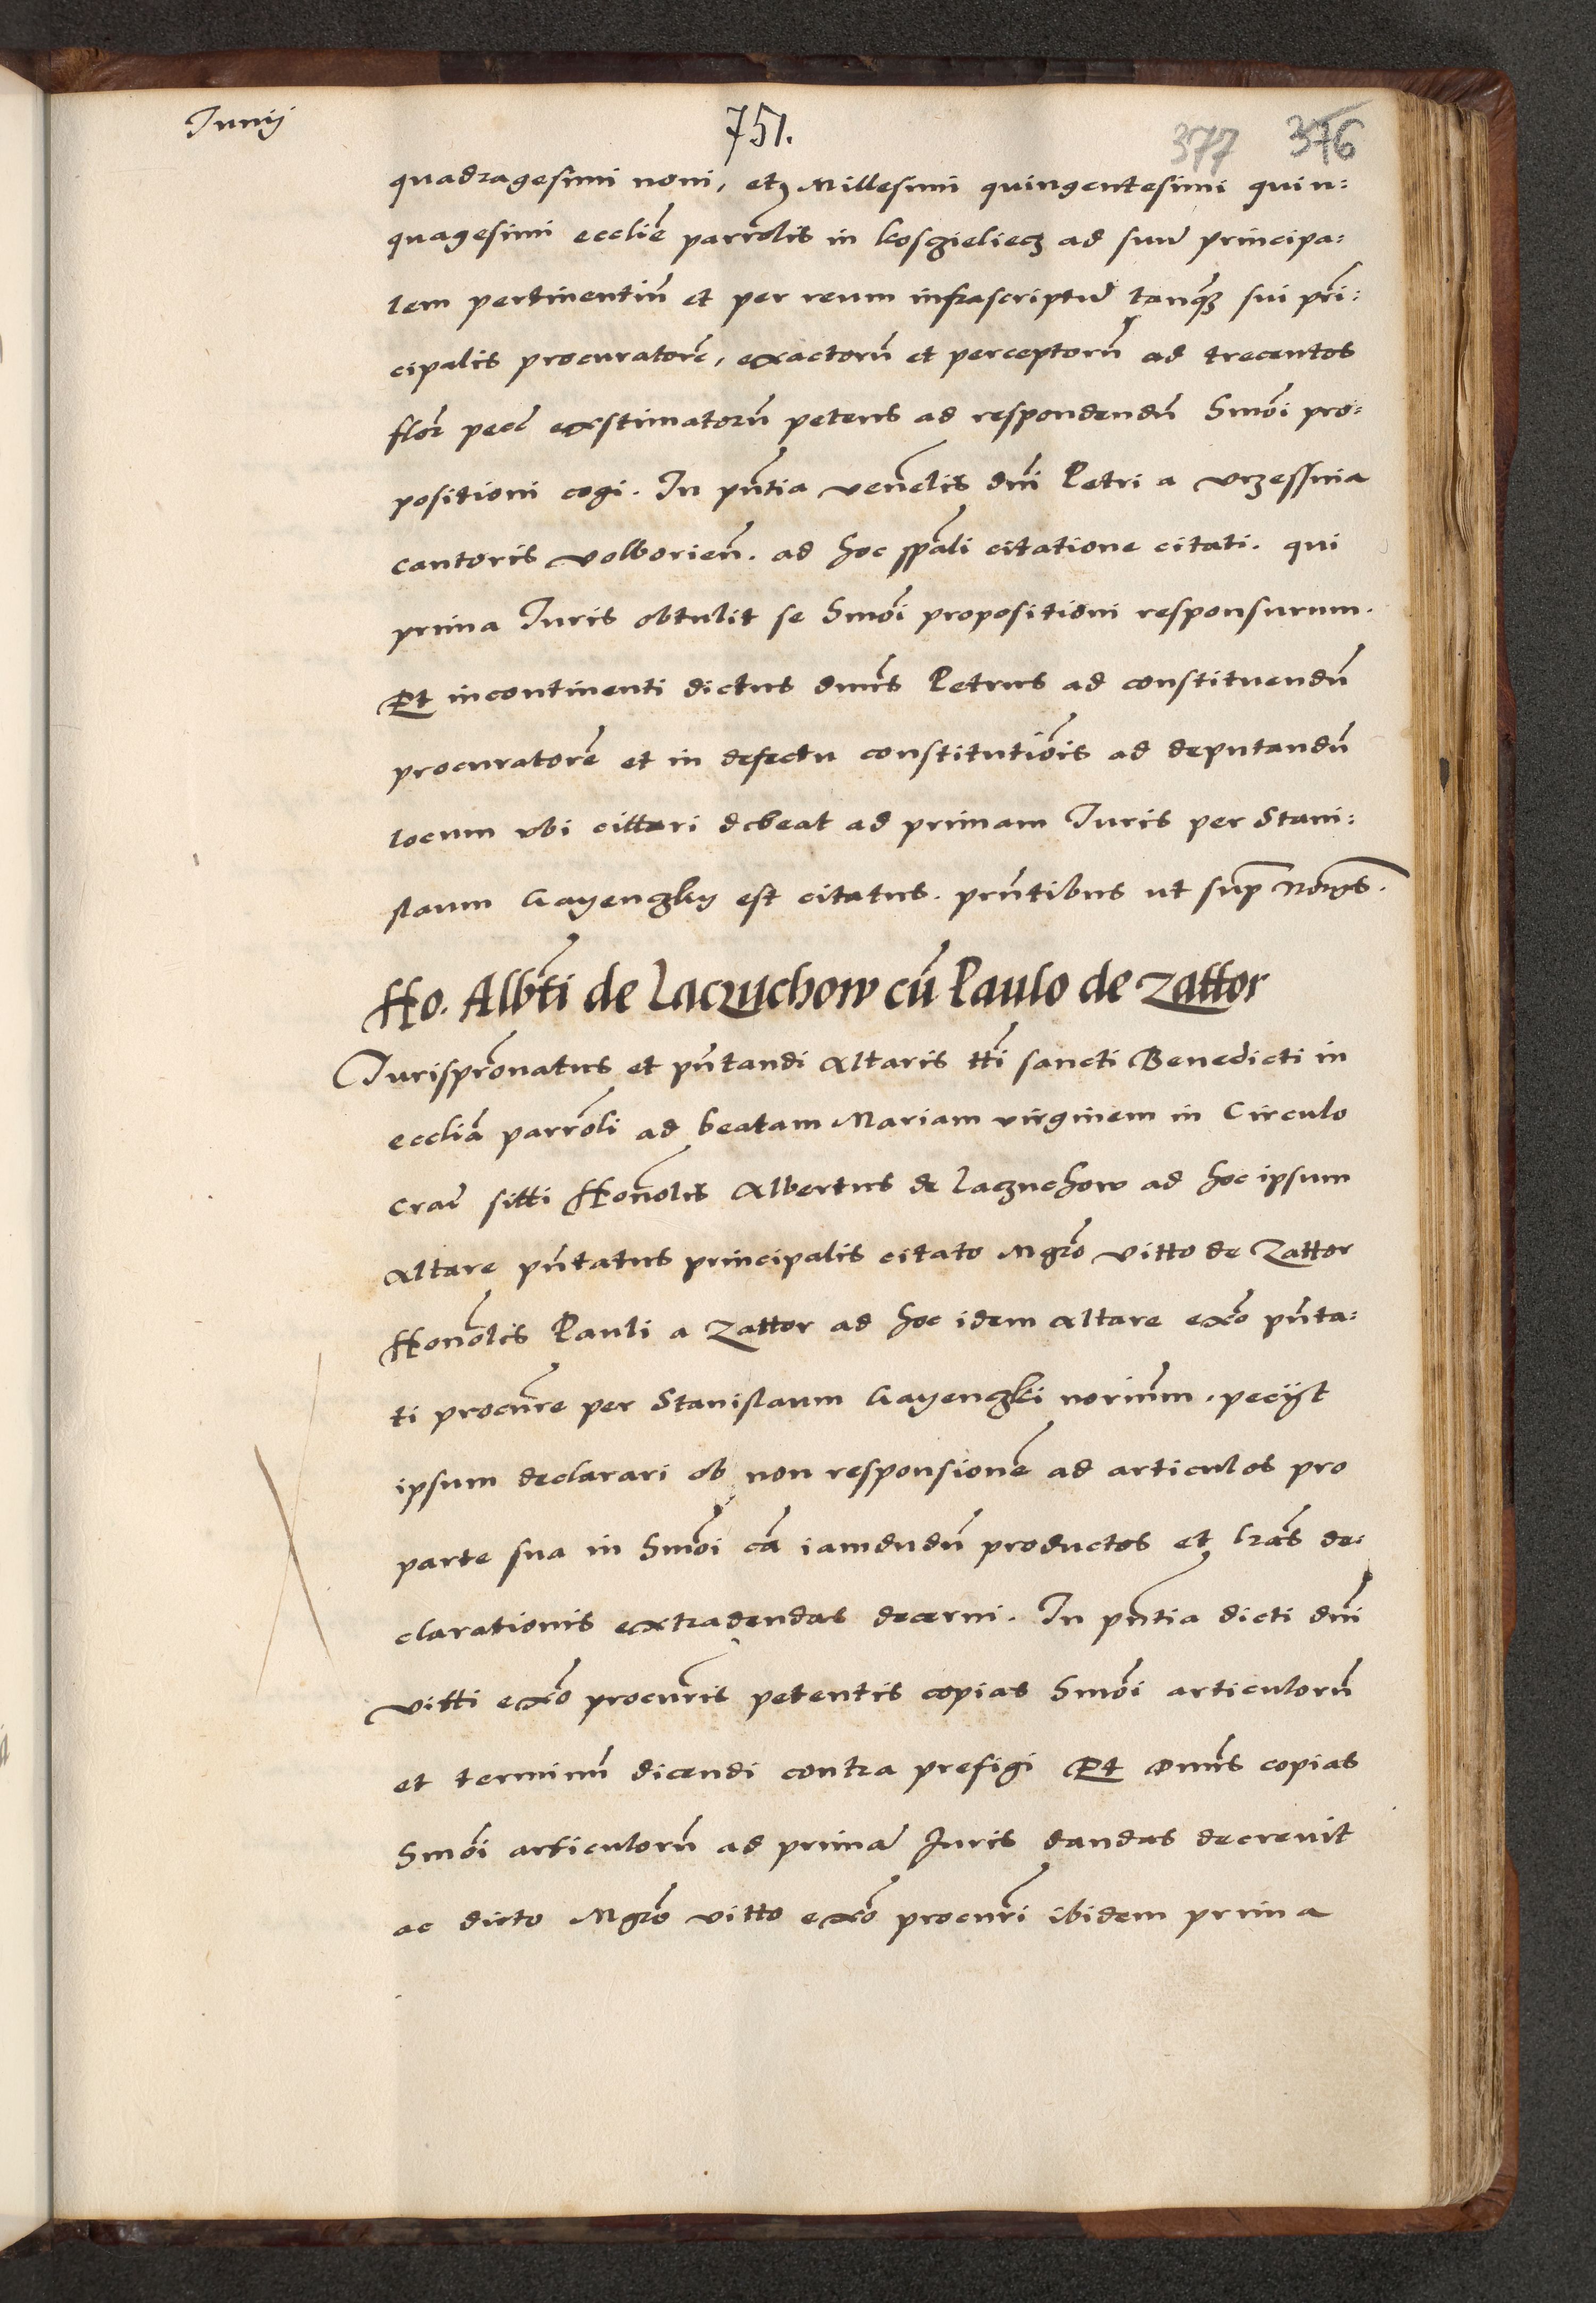 Junij
751.
377 376
quadragesimi noni, et Millesimi quingentesimi quin:
quagesimi ecclie͂ parrolis in kosczieliecz ad suu͂ principa:
lem pertinentiu͂ et per reum infrascriptu͂ tanqz sui pri͂:
cipalis procuratore͂, exactoru͂ et perceptoru͂ ad trecentos
flor͂ pecc͂ existimatoru͂ petens ad respondendu͂ Smo͂i pro:
positioni cogi. In pn͂tia vene͂lis dn͂i Petri a Wrzessnia
cantoris volborien͂. ad hoc spa͂li citatione citati. qui
prima Juris obtulit se Smo͂i propositioni responsurum.
Et incontinenti dictus dnu͂s Petrus ad constituendu͂
procuratore͂ et in defectu constitutio͂is ad deputandu͂
locum ubi cittari debeat ad primam Juris per Stani:
slaum Gayengky est citatus. pn͂tibus ut sup͂ No͂ys.
Ho. Alb͂ti de Laczuchow cu͂ Paulo de Zattor
Jurispro͂natus et pn͂tandi Altaris tt͂i sancti Benedicti in
ecclia͂ parro͂li ad beatam Mariam virginem in Circulo
Crac͂ sitti Hono͂lis Albertus de Laczuchow ad hoc ipsum
Altare pn͂tatus principalis citato Mgro͂ vitto de Zattor
Hono͂lis Pauli a Zattor ad hoc idem Altare ex͂o pn͂ta:
ti procu͂re per Stanislaum Gayengki noriu͂m. pecijt
ipsum declarari ob non responsione͂ ad articulos pro
parte sua in Smo͂i ca͂ iamdudu͂ productos et lr͂as de:
clarationis extradendas decerni. In pn͂tia dicti dn͂i
vitti ex͂o procu͂ris petentis copias Smo͂i articuloru͂
et terminu͂ dicendi contra prefigi Et Dnu͂s copias
Smo͂i articuloru͂ ad prima͂ Juris dandas decrevit
ac dicto Mgro͂ vitto ex͂o procu͂ri ibidem prima